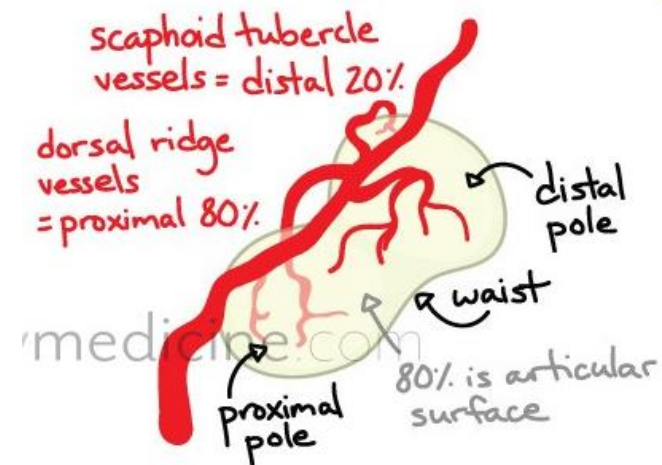 scaphoid tubercle
vessels = distal 20%
dorsal ridge
vessels
= proximal 80%
distal
pole
waist
medicine.com
80% is articular
surface
proximal
pole